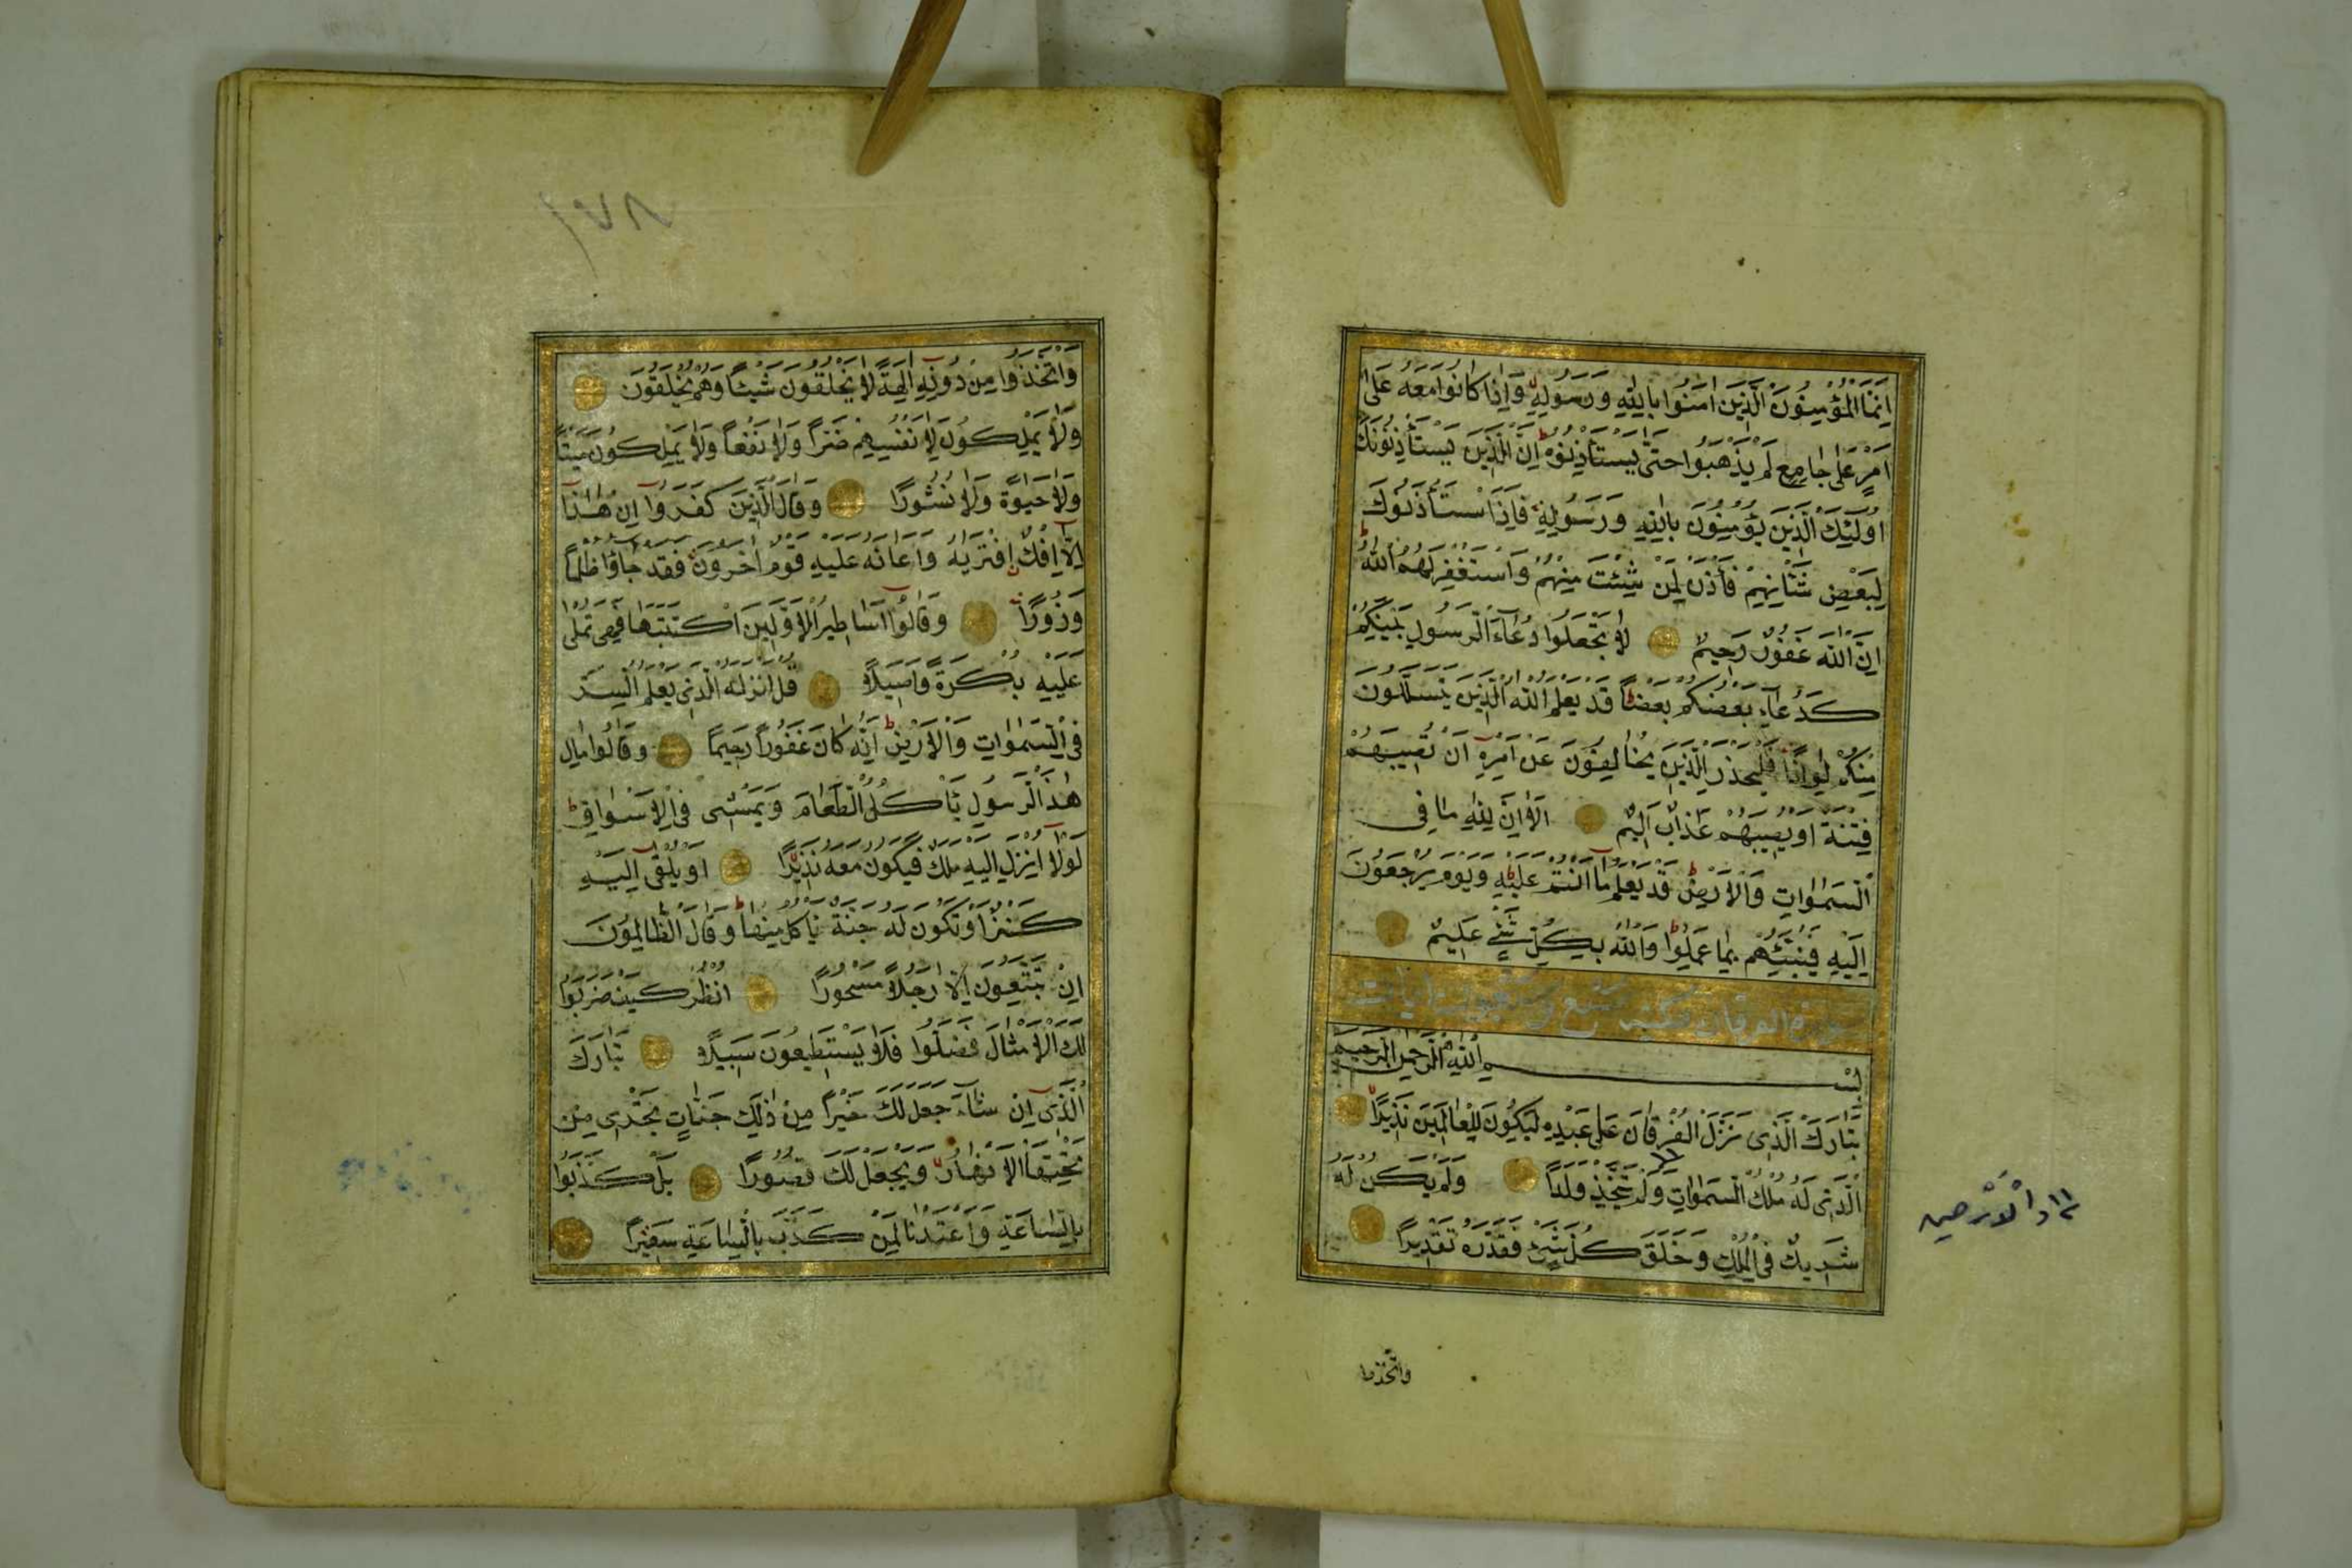 اِنَّمَا الْمُؤْمِنُونَ الَّذِينَ اٰمَنُوا بِاللّٰهِ وَرَسُولِهِ وَاِذَا كَانُوا مَعَهُ عَلٰى
اَمْرٍ عَلٰى جَامِعٍ لَمْ يَذْهَبُوا حَتّٰى يَسْتَأْذِنُوهُ اِنَّ الَّذِينَ يَسْتَأْذِنُونَكَ
اُولٰئِكَ الَّذِينَ يُؤْمِنُونَ بِاللّٰهِ وَرَسُولِهِ فَاِذَا اسْتَأْذَنُوكَ
لِبَعْضِ شَأْنِهِمْ فَأْذَنْ لِمَنْ شِئْتَ مِنْهُمْ وَاسْتَغْفِرْ لَهُمُ اللّٰهَ
اِنَّ اللّٰهَ غَفُورٌ رَحِيمٌ لَا تَجْعَلُوا دُعَاءَ الرَّسُولِ بَيْنَكُمْ
كَدُعَاءِ بَعْضِكُمْ بَعْضًا قَدْ يَعْلَمُ اللّٰهُ الَّذِينَ يَتَسَلَّلُونَ
مِنْكُمْ لِوَاذًا فَلْيَحْذَرِ الَّذِينَ يُخَالِفُونَ عَنْ اَمْرِهِ اَنْ تُصِيبَهُمْ
فِتْنَةٌ اَوْ يُصِيبَهُمْ عَذَابٌ اَلِيمٌ اَلَا اِنَّ لِلّٰهِ مَا فِى
السَّمٰوَاتِ وَالْاَرْضِ قَدْ يَعْلَمُ مَا اَنْتُمْ عَلَيْهِ وَيَوْمَ يُرْجَعُونَ
اِلَيْهِ فَيُنَبِّئُهُمْ بِمَا عَمِلُوا وَاللّٰهُ بِكُلِّ شَىْءٍ عَلِيمٌ
سورة الفرقان مكية سبع وسبعون ايات
بِسْمِ اللّٰهِ الرَّحْمٰنِ الرَّحِيمِ
تَبَارَكَ الَّذِى نَزَّلَ الْفُرْقَانَ عَلٰى عَبْدِهِ لِيَكُونَ لِلْعَالَمِينَ نَذِيرًا
اَلَّذِى لَهُ مُلْكُ السَّمٰوَاتِ وَلَمْ يَتَّخِذْ وَلَدًا وَلَمْ يَكُنْ لَهُ
شَرِيكٌ فِى الْمُلْكِ وَخَلَقَ كُلَّ شَىْءٍ فَقَدَّرَهُ تَقْدِيرًا
وَالْاَرْضِ
واتخذوا
١٧٨
وَاتَّخَذُوا مِنْ دُونِهِ اٰلِهَةً لَا يَخْلُقُونَ شَيْئًا وَهُمْ يُخْلَقُونَ
وَلَا يَمْلِكُونَ لِاَنْفُسِهِمْ ضَرًّا وَلَا نَفْعًا وَلَا يَمْلِكُونَ مَيْتًا
وَلَا حَيٰوةً وَلَا نُشُورًا وَقَالَ الَّذِينَ كَفَرُوا اِنْ هٰذَا
اِلَّا اِفْكٌ افْتَرٰيهُ وَاَعَانَهُ عَلَيْهِ قَوْمٌ اٰخَرُونَ فَقَدْ جَاؤُا ظُلْمًا
وَزُورًا وَقَالُوا اَسَاطِيرُ الْاَوَّلِينَ اكْتَتَبَهَا فَهِىَ تُمْلٰى
عَلَيْهِ بُكْرَةً وَاَصِيلًا قُلْ اَنْزَلَهُ الَّذِى يَعْلَمُ السِّرَّ
فِى السَّمٰوَاتِ وَالْاَرْضِ اِنَّهُ كَانَ غَفُورًا رَحِيمًا وَقَالُوا مَالِ
هٰذَا الرَّسُولِ يَأْكُلُ الطَّعَامَ وَيَمْشِى فِى الْاَسْوَاقِ
لَوْلَا اُنْزِلَ اِلَيْهِ مَلَكٌ فَيَكُونَ مَعَهُ نَذِيرًا اَوْ يُلْقٰى اِلَيْهِ
كَنْزٌ اَوْ تَكُونُ لَهُ جَنَّةٌ يَأْكُلُ مِنْهَا وَقَالَ الظَّالِمُونَ
اِنْ تَتَّبِعُونَ اِلَّا رَجُلًا مَسْحُورًا اُنْظُرْ كَيْفَ ضَرَبُوا
لَكَ الْاَمْثَالَ فَضَلُّوا فَلَا يَسْتَطِيعُونَ سَبِيلًا تَبَارَكَ
الَّذِى اِنْ شَاءَ جَعَلَ لَكَ خَيْرًا مِنْ ذٰلِكَ جَنَّاتٍ تَجْرِى مِنْ
تَحْتِهَا الْاَنْهَارُ وَيَجْعَلْ لَكَ قُصُورًا بَلْ كَذَّبُوا
بِالسَّاعَةِ وَاَعْتَدْنَا لِمَنْ كَذَّبَ بِالسَّاعَةِ سَعِيرًا